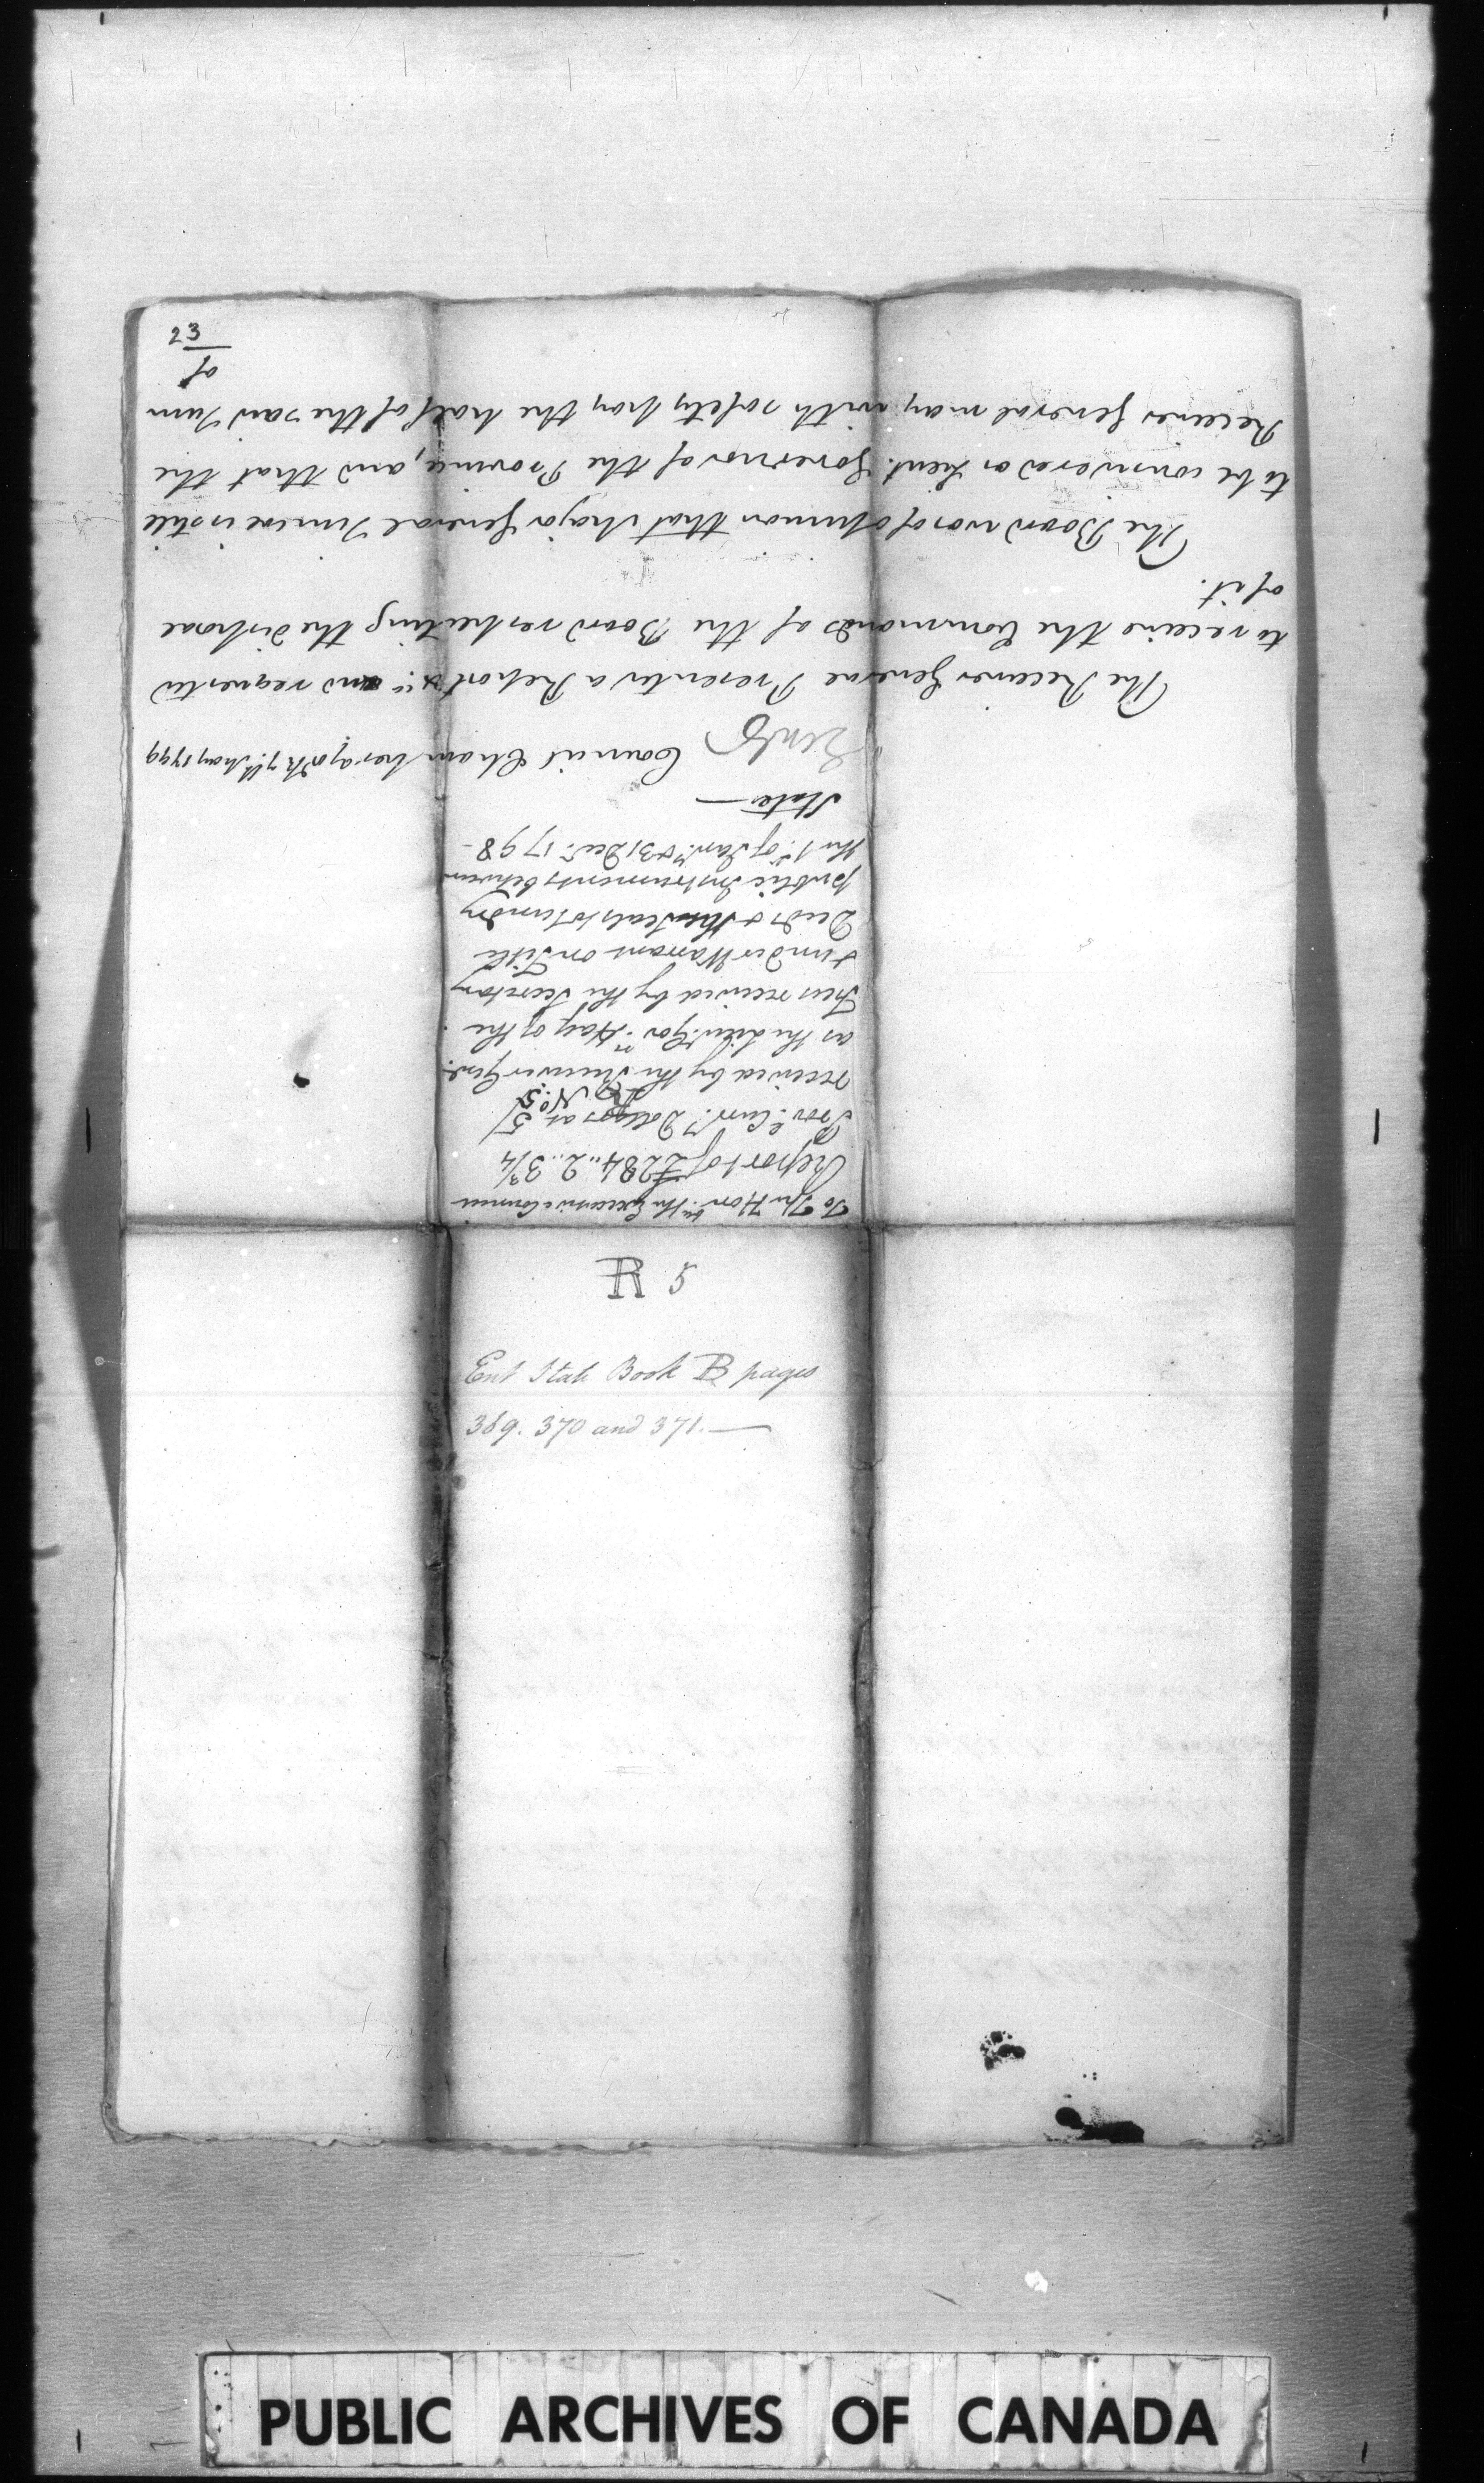 R 5
Ent State Book B pages
369. 370 and 371.—
To The Hon.ble the Executive Council
Report of £284..2..3¾
Prov.l Curr.y Dollars at 5/
R N.o 5
received by the Receiver Gen.l
as the Lieu.t Gov.rs Half of the
Fees received by the Secretary
& under Warrant on Title
Deeds & the Seals to sundry
public Instruments between
the 1st of Jan.y & 31 Dec.r 1798 -
State —
Council Chamber York 7th May 1799
The Receiver General Presented a Report &c. and requested
to receive the Commands of the Board respecting the disposal
of it.
The Board was of opinion that Major General Simcoe is still
to be considered as Lieut. Governor of the Province, and that the
Receiver General may with safety pay the half of the said Sum
of
23
PUBLIC ARCHIVES OF CANADA